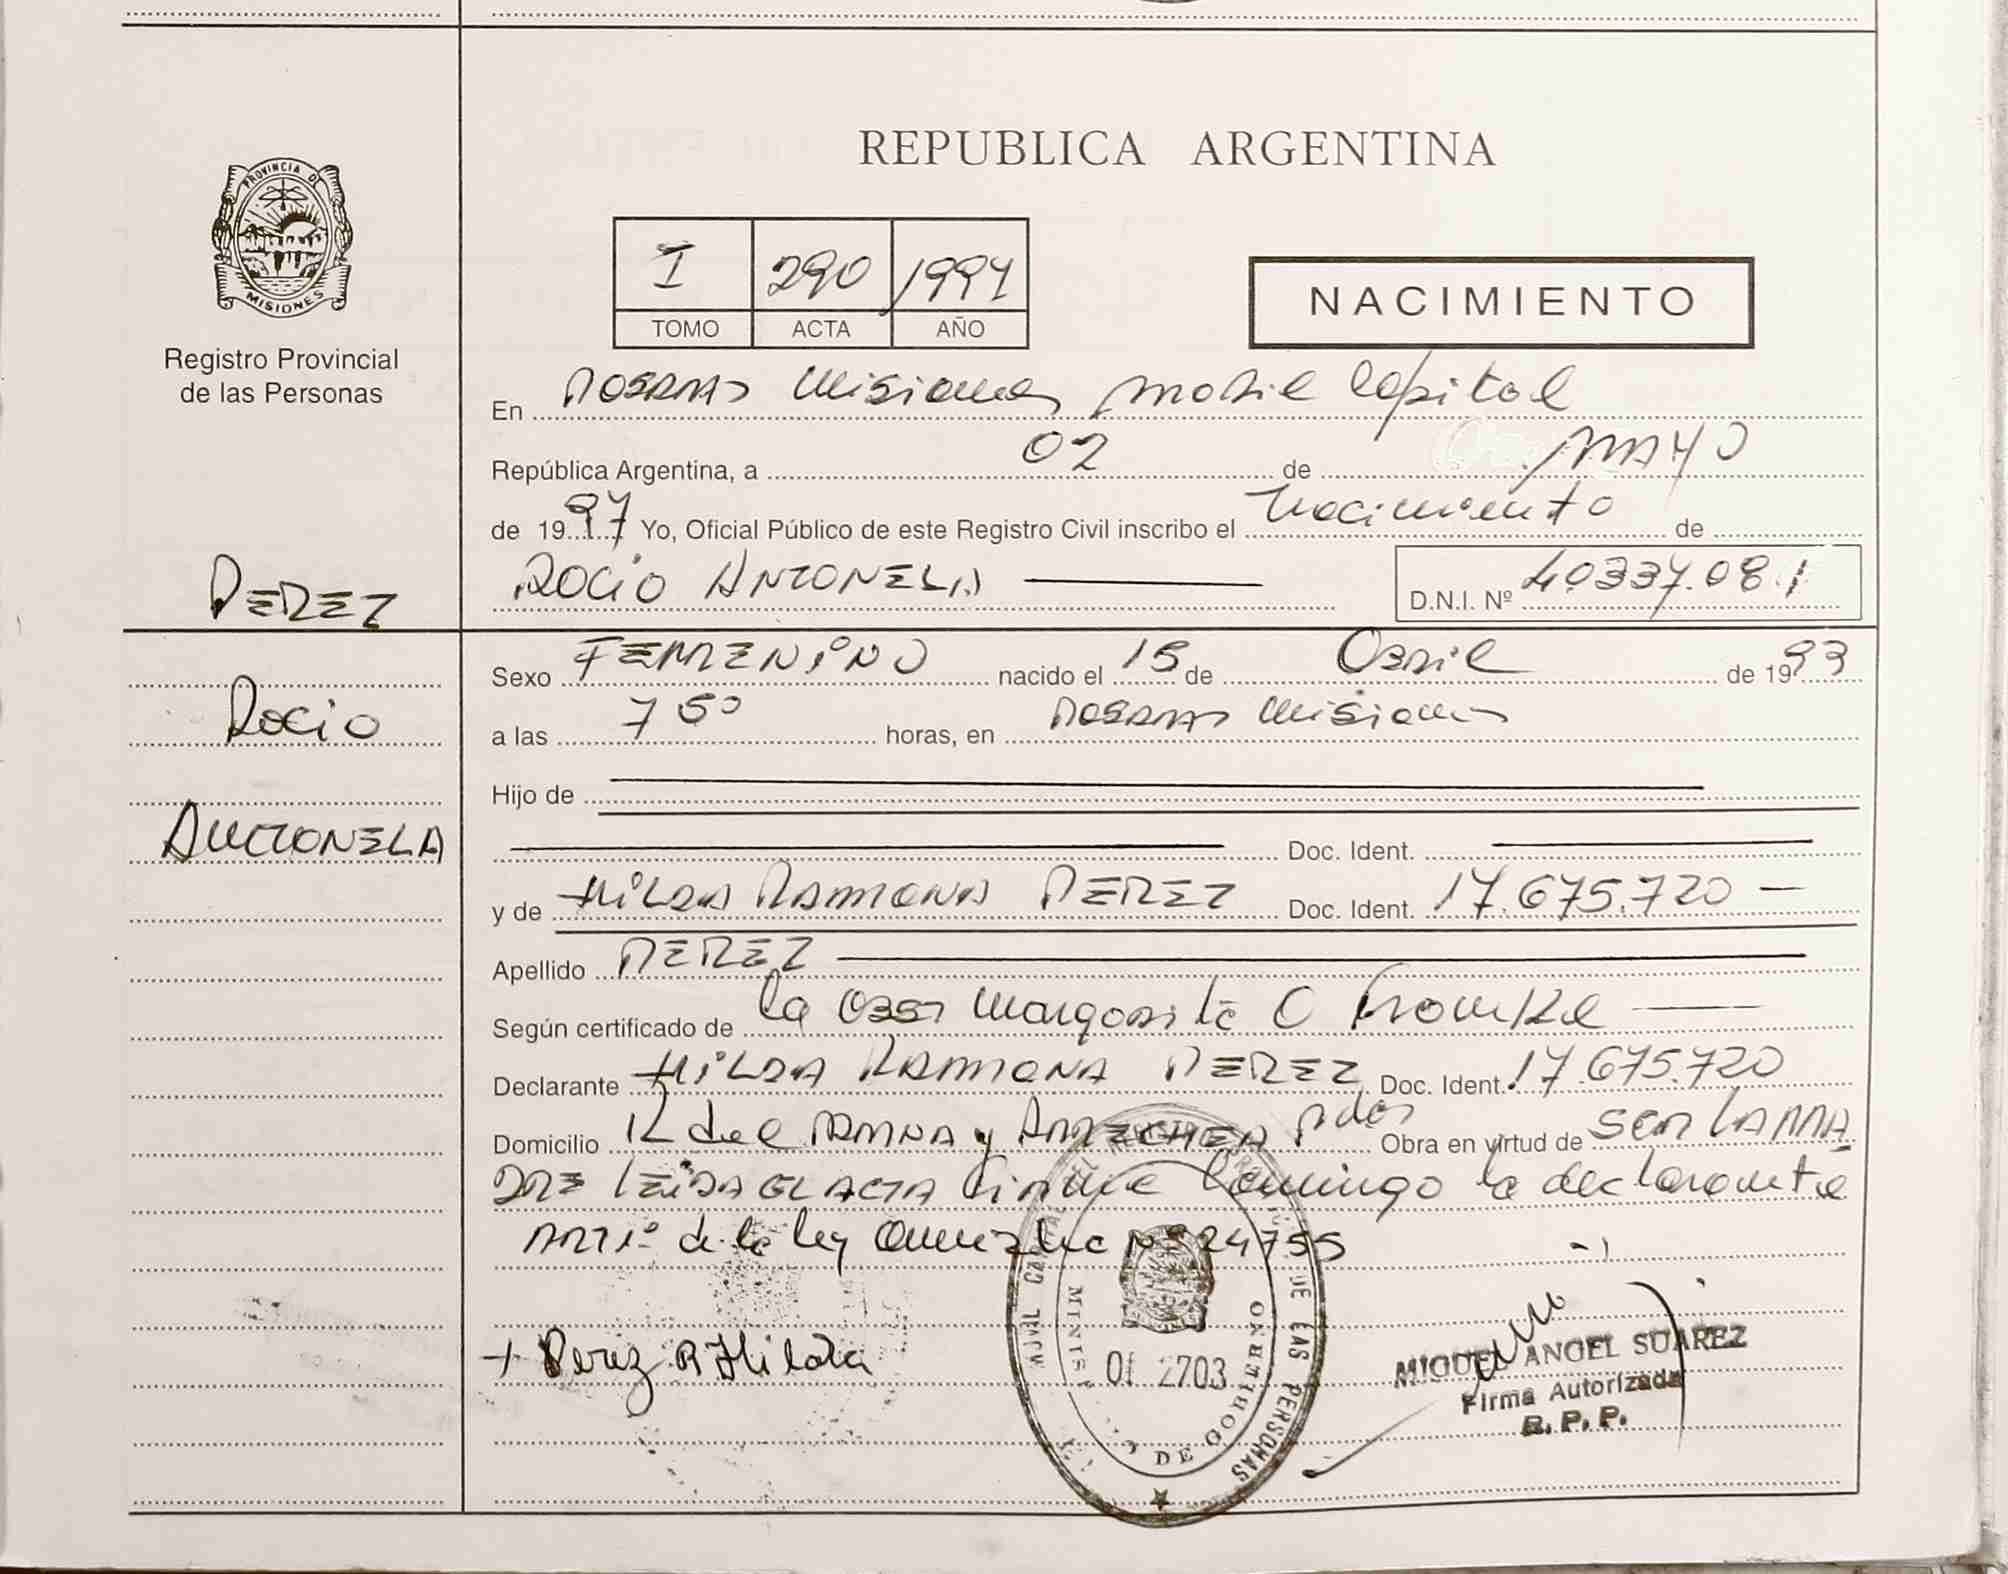 REPUBLICA ARGENTINA
PROVINCIA DE
MISIONES
Registro Provincial
de las Personas
I 290 1997
TOMO ACTA AÑO
NACIMIENTO
En Posadas Misiones Movil Capital
República Argentina, a 02 de MAYO
de 1997 Yo, Oficial Público de este Registro Civil inscribo el Nacimiento de
PEREZ
ROCIO ANTONELA D.N.I. Nº 40.337.081
Sexo FEMENINO nacido el 15 de Abril de 1993
Rocio
a las 7 50 horas, en Posadas Misiones
Hijo de
ANTONELA
Doc. Ident.
y de HILDA RAMONA PEREZ Doc. Ident. 17.675.720
Apellido PEREZ
Según certificado de la Obst Margarita C
Declarante HILDA RAMONA PEREZ Doc. Ident. 17.675.720
Domicilio Pdas Obra en virtud de SER LA MA
DRE LEIDA EL ACTA firma conmigo la declarante
ART 1º de la ley Nº 24755
Perez R Hilda
DE LAS PERSONAS
DE GOBIERNO
MIGUEL ANGEL SUAREZ
Firma Autorizada
R. P. P.